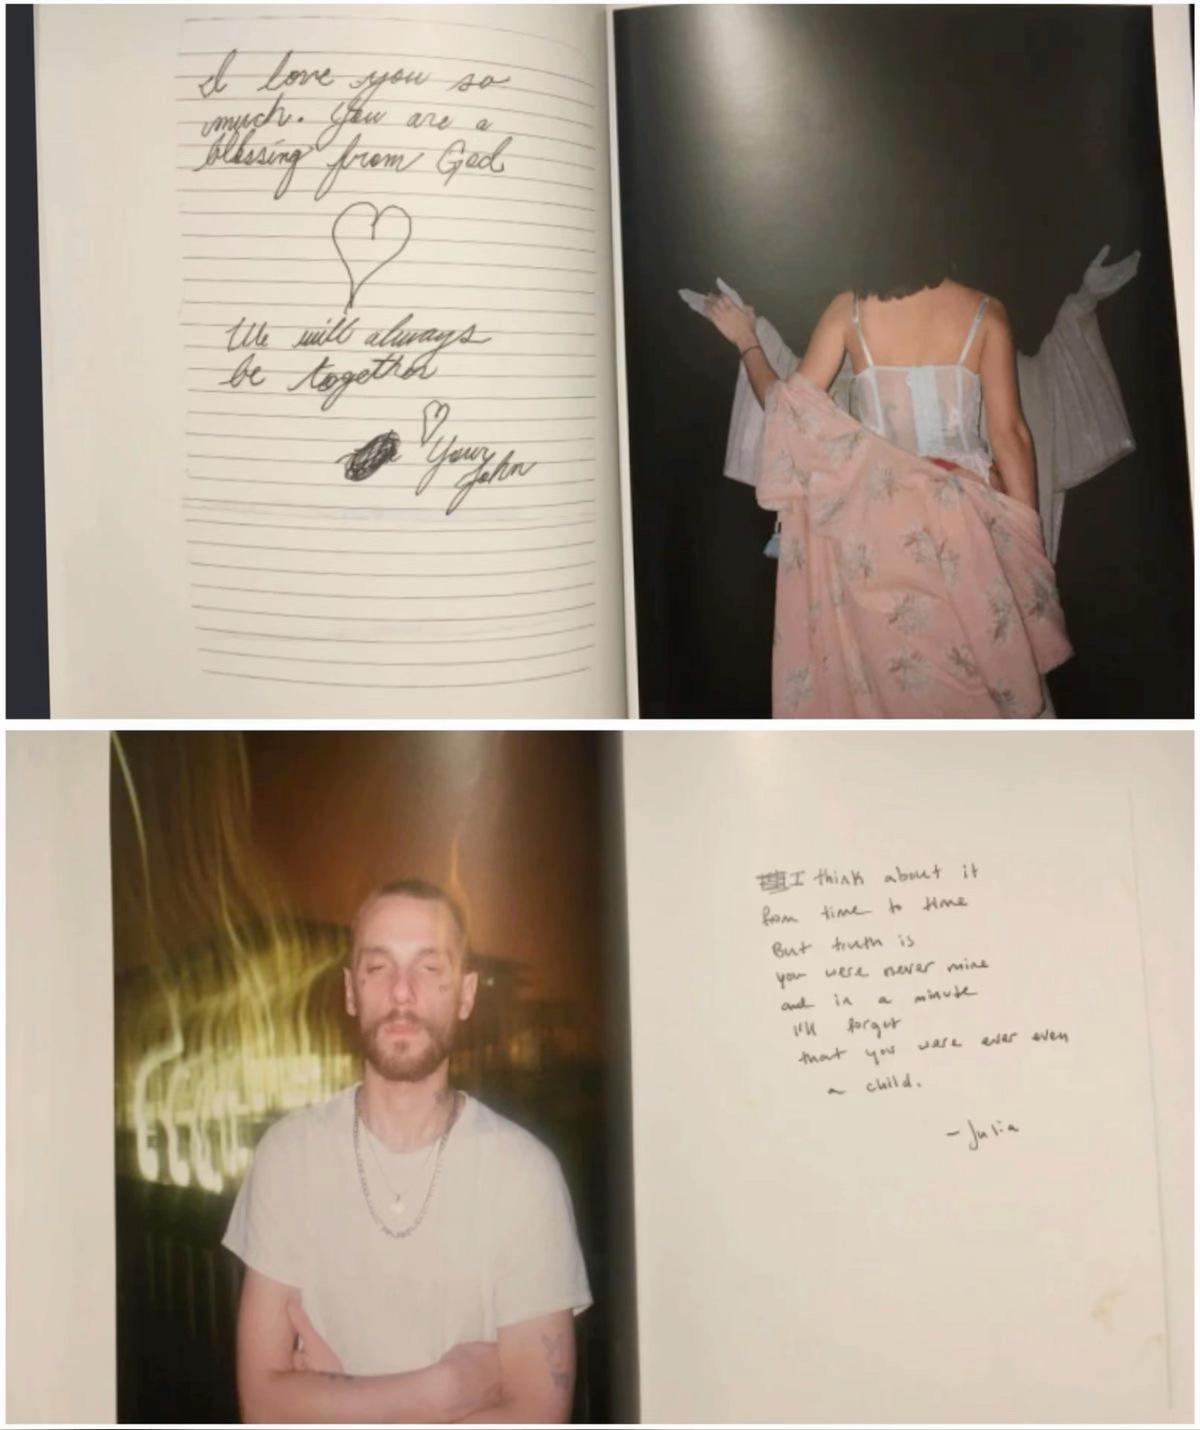 I love you so
much. You are a
blessing from God
We will always
be together
Your
John
I think about it
from time to time
But truth is
you were never mine
and in a minute
I'll forget
that you were ever even
a child.
- Julia